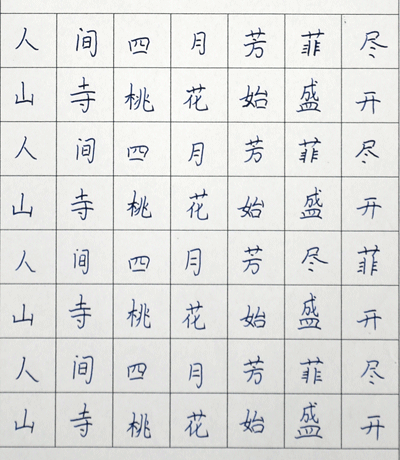 人间四月芳菲尽
山寺桃花始盛开
人间四月芳菲尽
山寺桃花始盛开
人间四月芳尽菲
山寺桃花始盛开
人间四月芳菲尽
山寺桃花始盛开